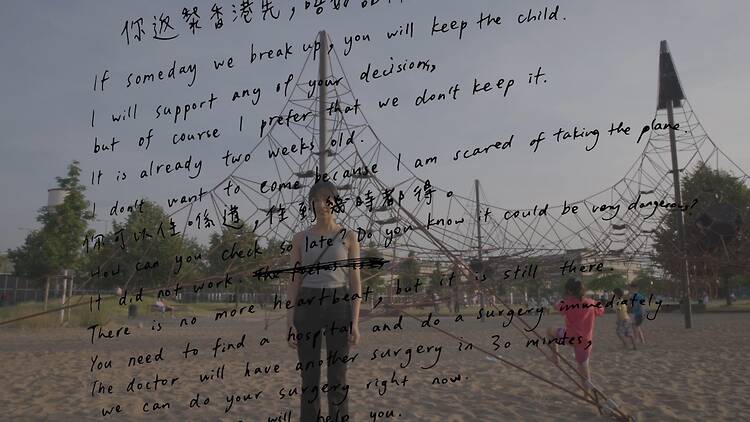 你返黎香港先，唔好
If someday we break up, you will keep the child.
I will support any of your decisions,
but of course I prefer that we don't keep it.
It is already two weeks old.
I don't want to come because I am scared of taking the plane.
你可以住喺道，住到幾時都得。
How can you check so late? Do you know it could be very dangerous?
It did not work.
There is no more heartbeat, but it is still there.
You need to find a hospital and do a surgery immediately
The doctor will have another surgery in 30 minutes,
we can do your surgery right now.
will help you.